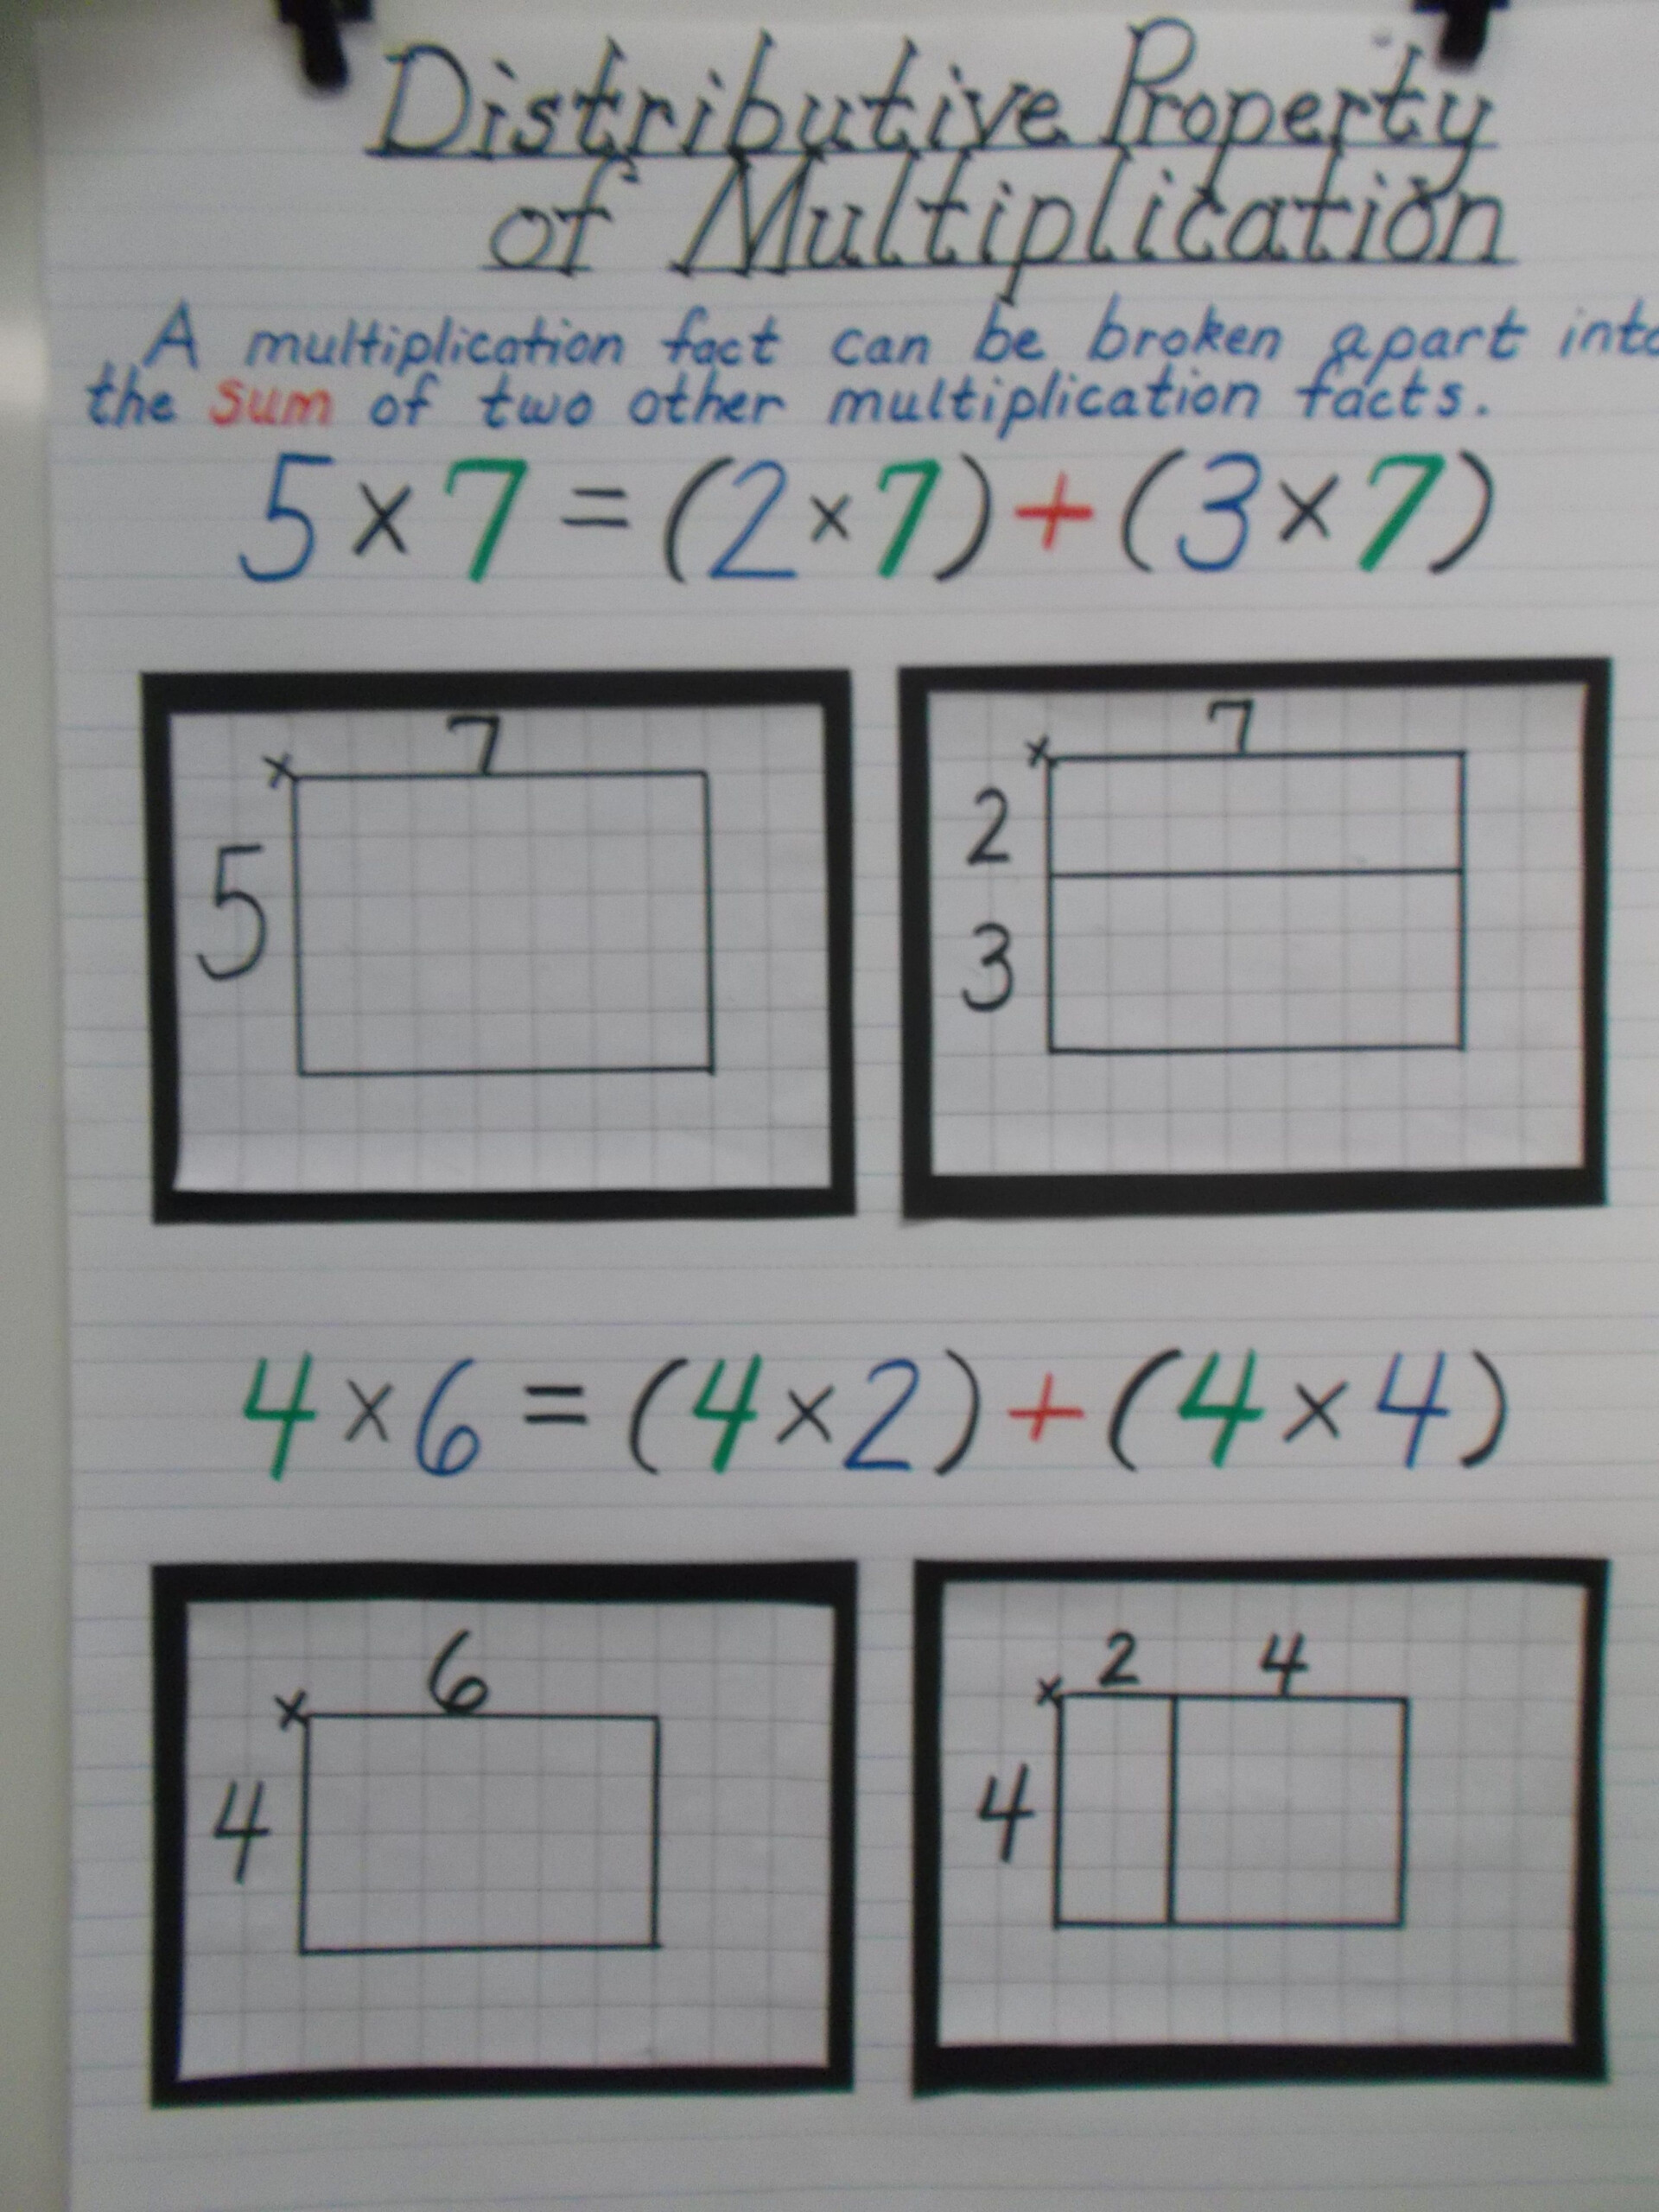 Distributive Property
of Multiplication
A multiplication fact can be broken apart into
the sum of two other multiplication facts.
5 × 7 = (2 × 7) + (3 × 7)
× 7
5
× 7
2
3
4 × 6 = (4 × 2) + (4 × 4)
× 6
4
× 2 4
4